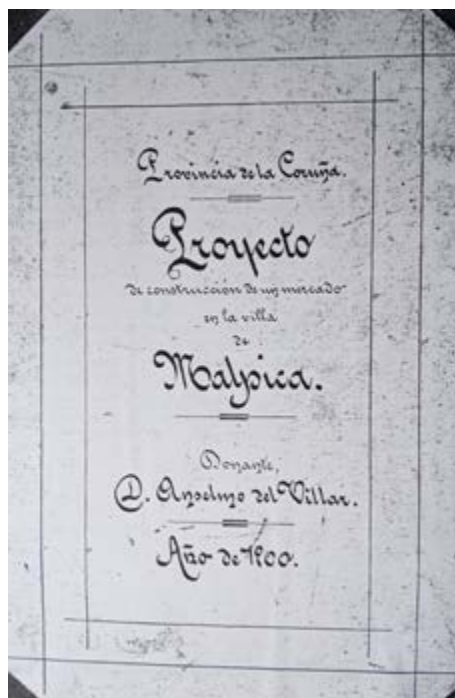 Provincia de la Coruña.
Proyecto
de construcción de un mercado
en la villa
de
Malpica.
Donante,
D. Anselmo del Villar.
Año de 1900.